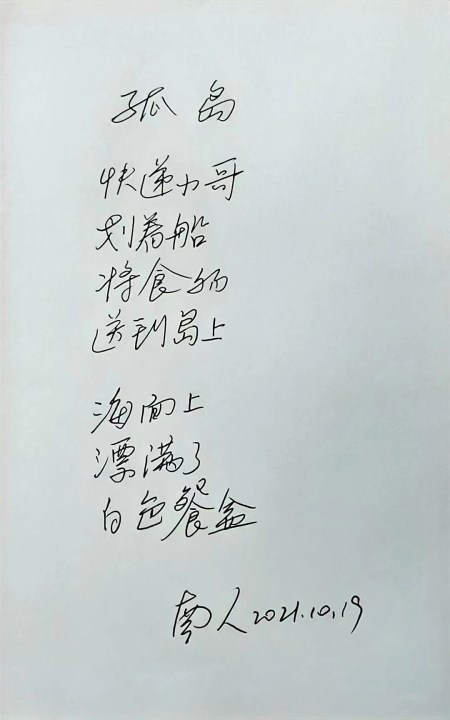 孤岛
快递小哥
划着船
将食物
送到岛上
海面上
漂满了
白色餐盒
南人2021.10.19